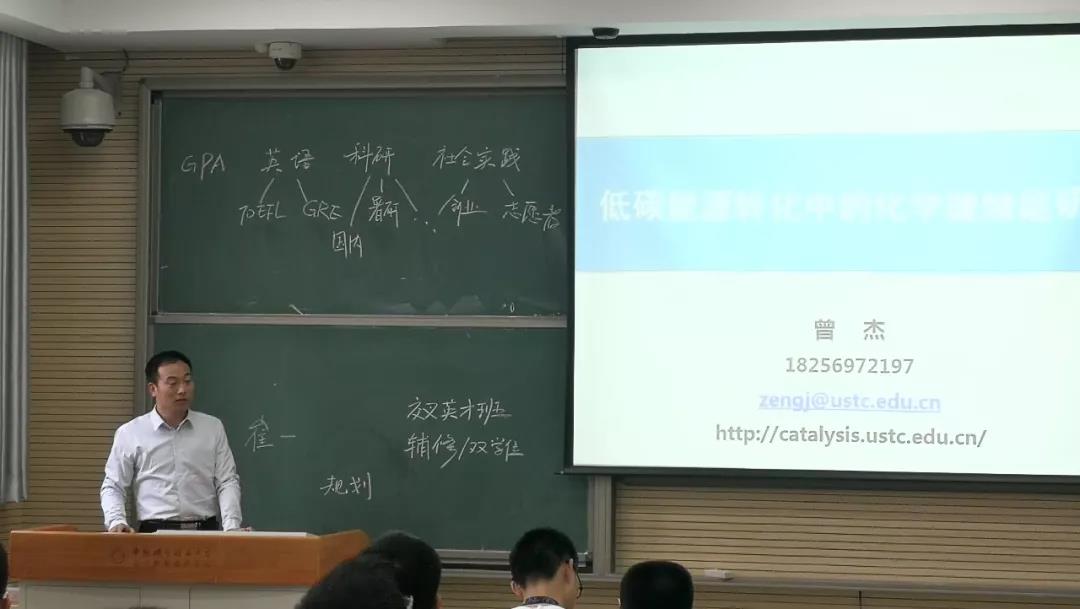 GPA 英语 科研 社会实践
TOEFL GRE 暑研 ... 创业 志愿者
国内
交叉英才班
辅修/双学位
规划
低碳能源转化中的化学
曾 杰
18256972197
zengj@ustc.edu.cn
http://catalysis.ustc.edu.cn/